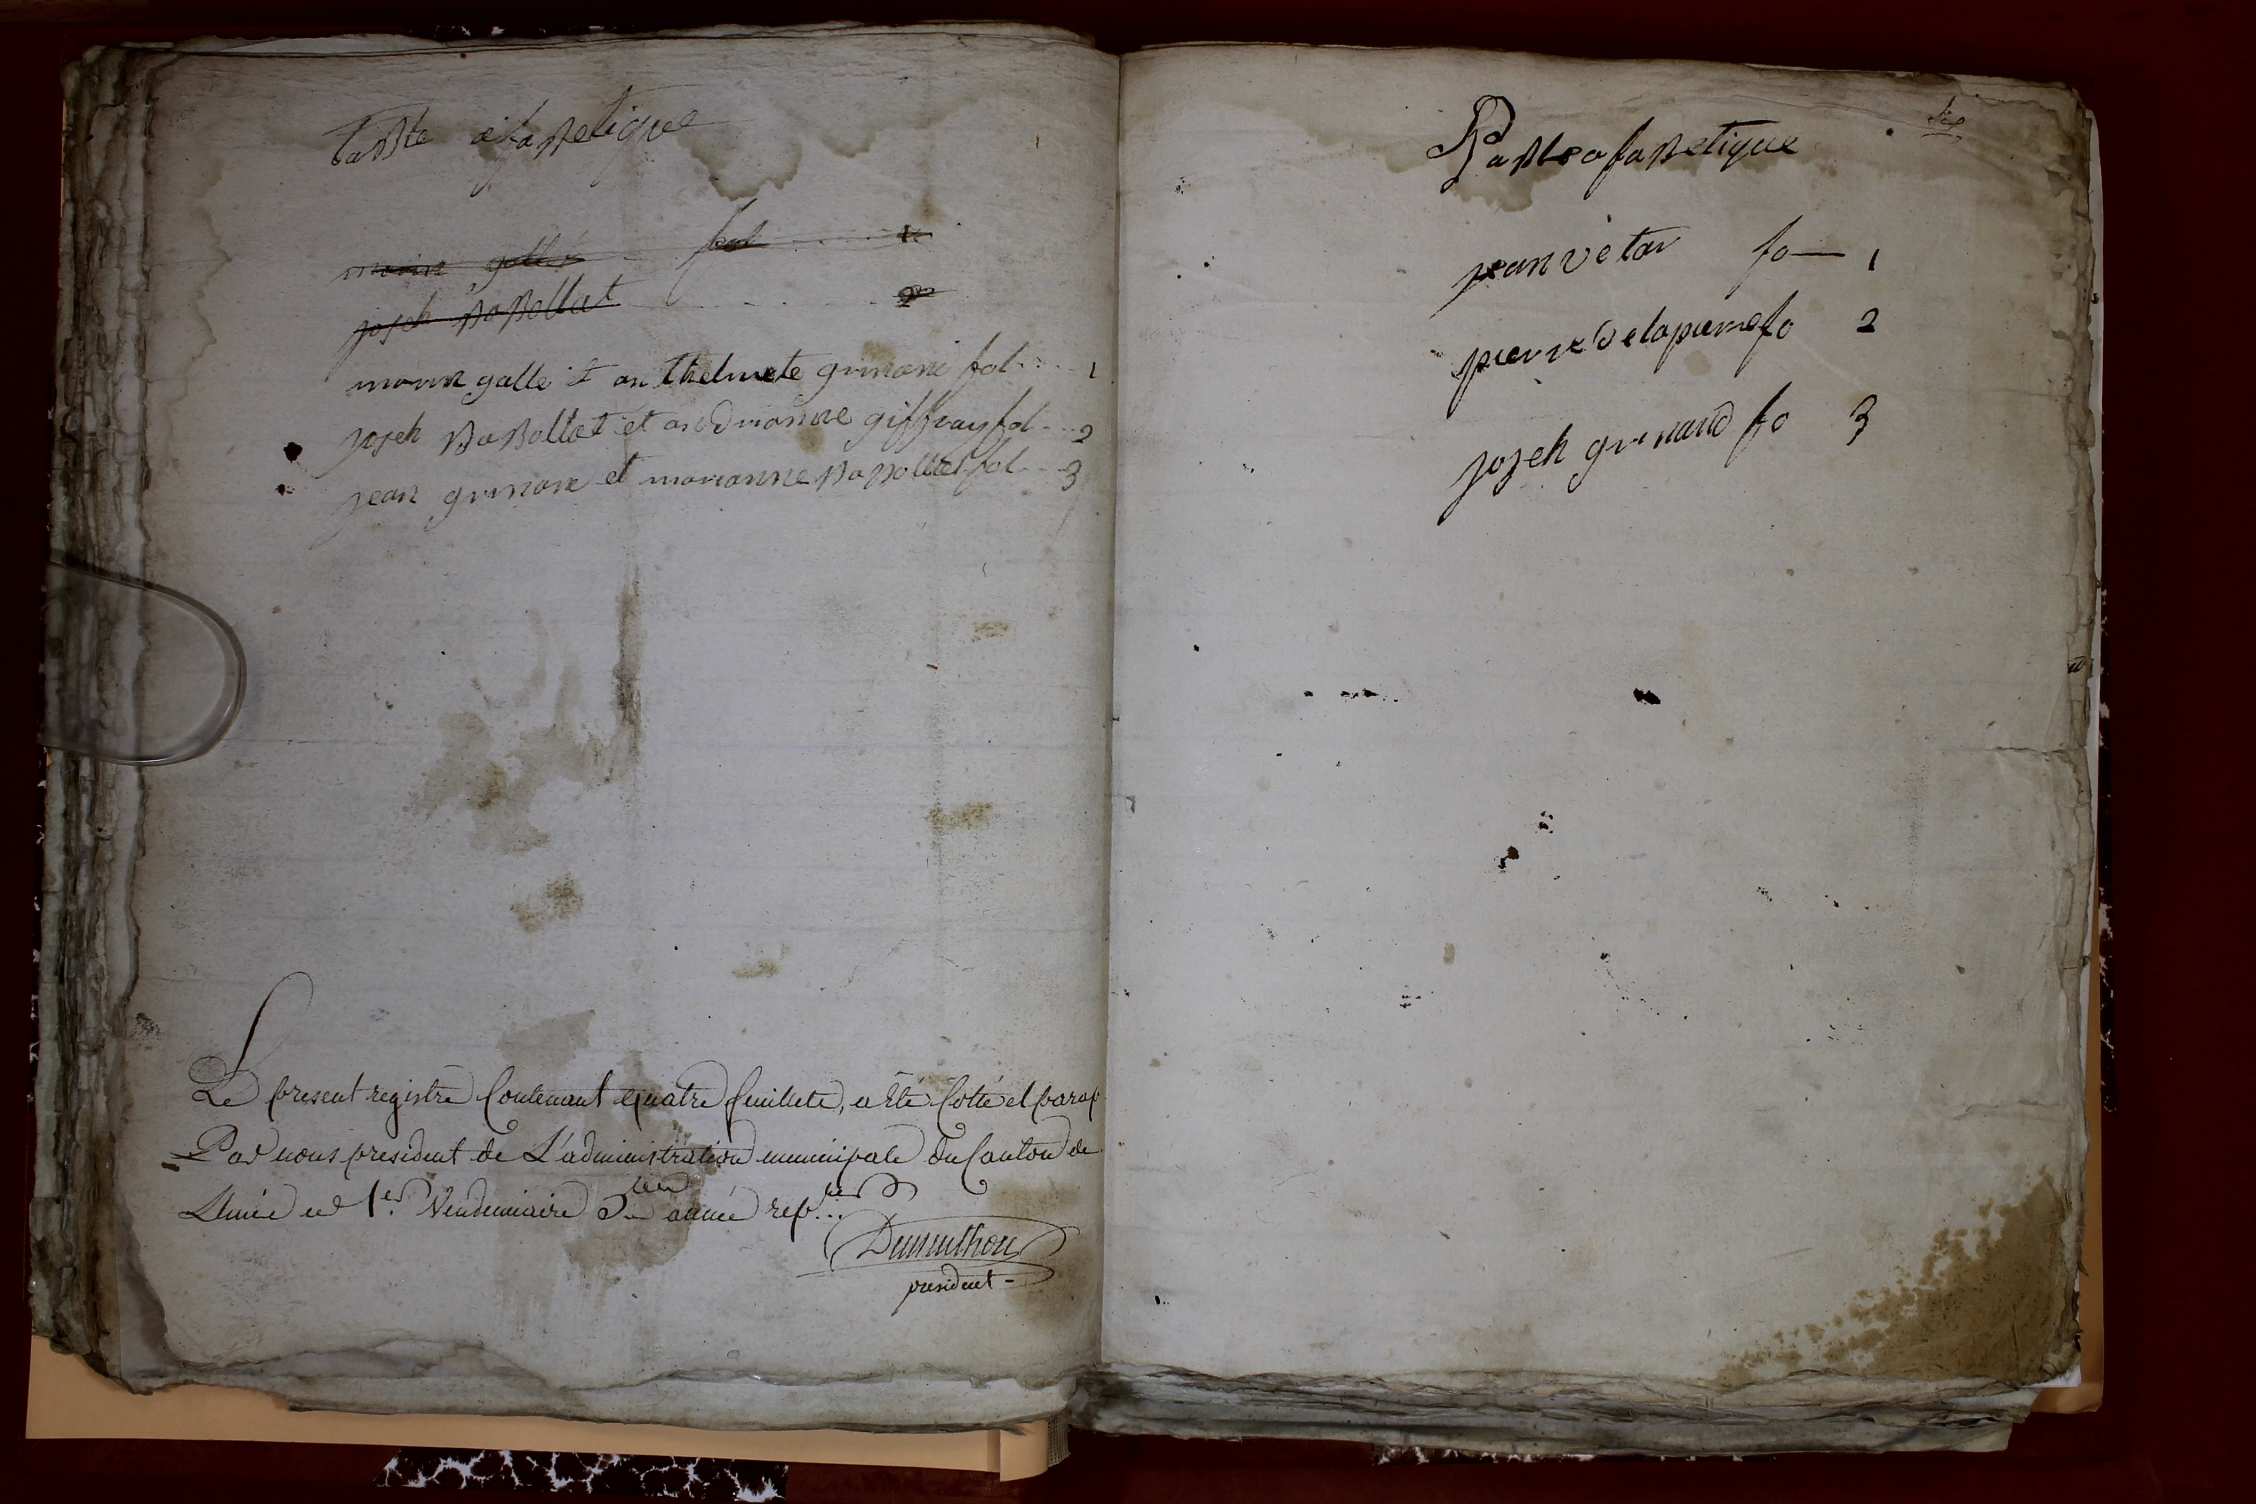 Table alfabetique
marin gallé fol 1
joseh Babollat 2
marin galle et anthelmete guinane fol 1
joseh Babollat et andrianne giffray fol 2
jean guinane et marianne Babollat fol 3
Le present registre Contenant quatre feuillets, a été Cotté et paraf
Par nous president de L'administration municipale du Canton de
ce 1er Vendemiaire année rep
president
Table afabetique
jean vetar fo 1
pierre delapierre fo 2
joseh guinand fo 3